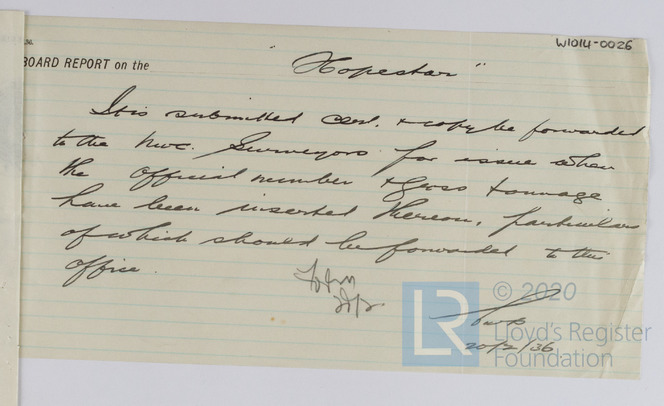 W1014-0026
36.
BOARD REPORT on the
"Hopestar"
It is submitted cert. & copy be forwarded
to the Nwc. Surveyors for issue when
the official number & gross tonnage
have been inserted thereon, particulars
of which should be forwarded to this
office.
20/2/36
© 2020
LR
Lloyd's Register
Foundation